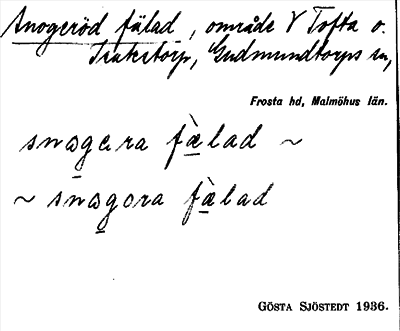 Snogeröd fälad, område V Tofta o.
Trulstorp, Gudmundtorps sn,
Frosta hd, Malmöhus län.
snogera fæ̀lad ~
~ snogora fæ̀lad
GÖSTA SJÖSTEDT 1936.